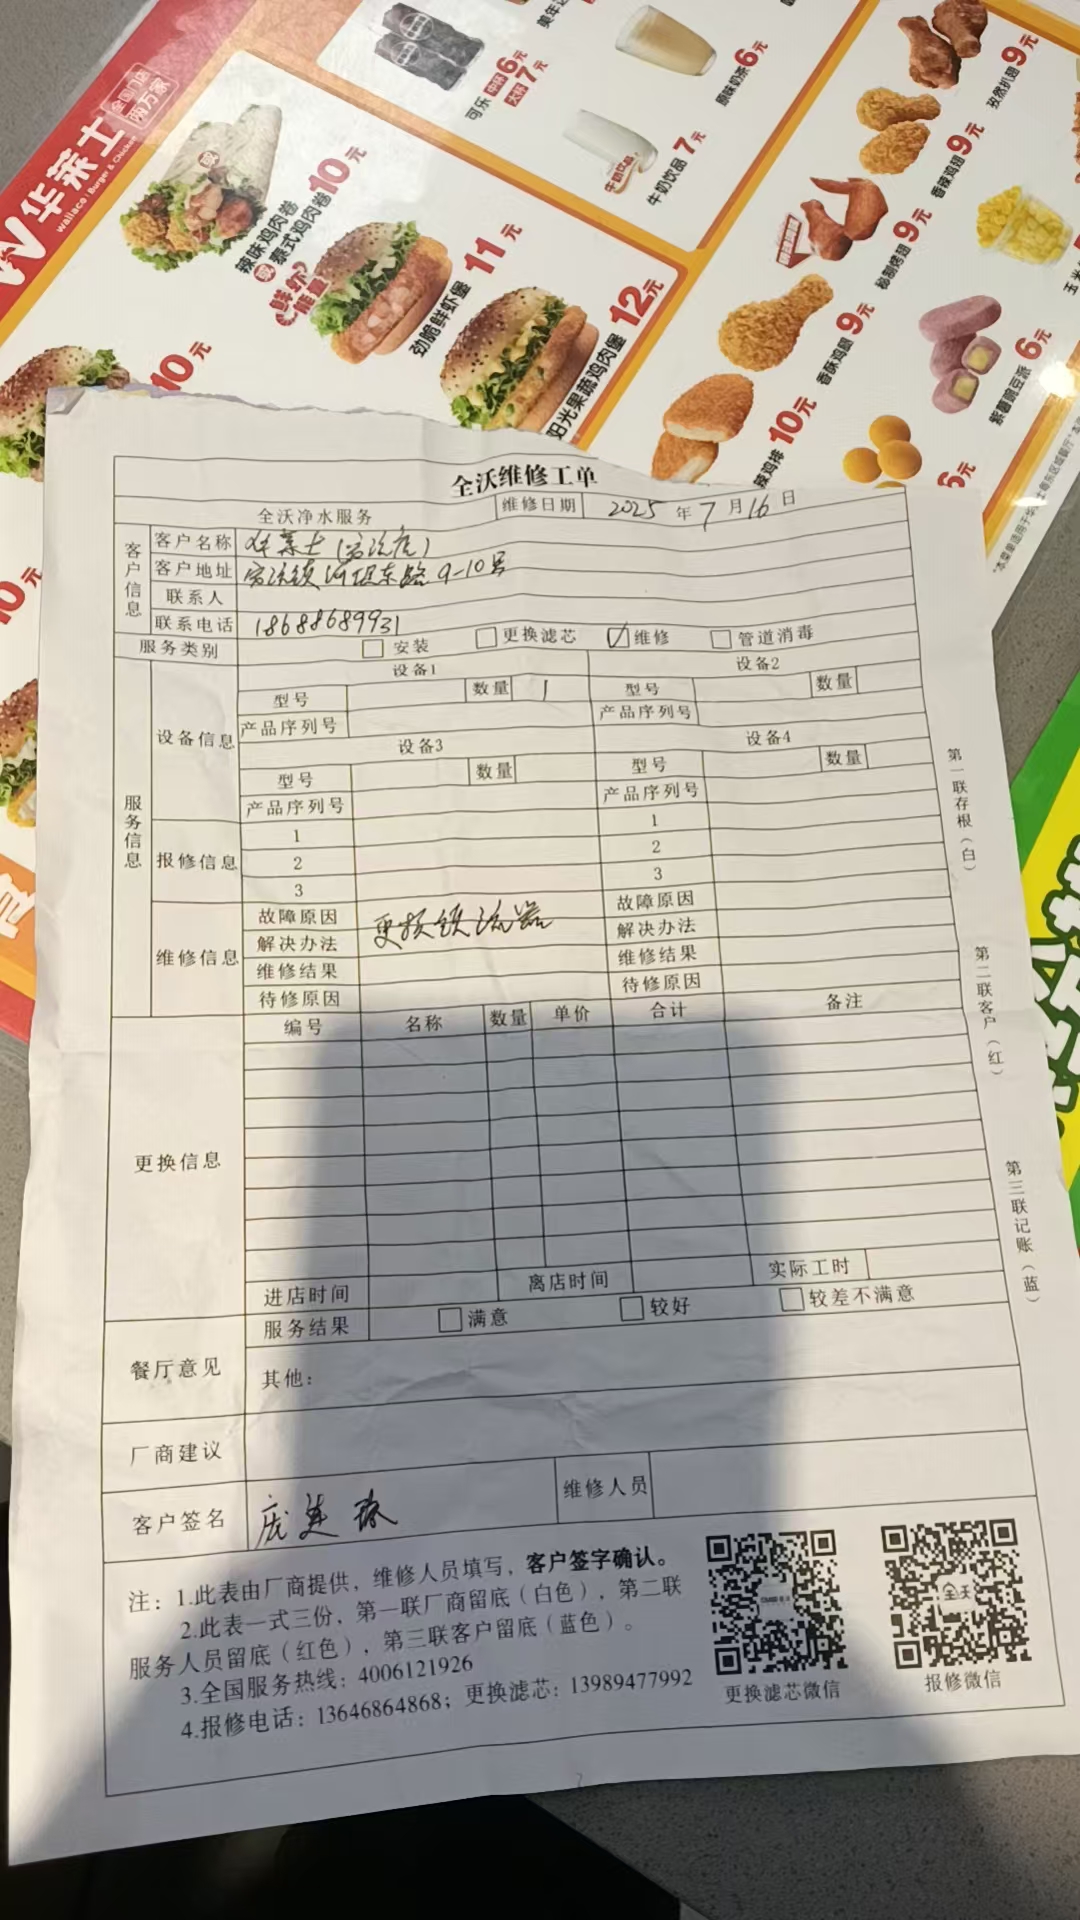 华莱士
Wallace | Burger & Chicken
全国门店
两万家
可乐 中杯 6元
大杯 7元
原味奶茶 6元
牛奶饮品 7元
孜然扒翅 9元
香辣鸡翅 9元
秘制烤翅 9元
香酥鸡腿 9元
紫薯豌豆派 6元
辣鸡排 10元
6元
辣味鸡肉卷
泰式鸡肉卷 10元
鲜虾
劲脆鲜虾堡 11元
阳光果蔬鸡肉堡 12元
10元
10元
全沃维修工单
全沃净水服务 维修日期 2025 年 7 月 16 日
客户信息
客户名称 华莱士
客户地址 河坦东路 9-10号
联系人
联系电话 18688689931
服务类别 安装 更换滤芯 维修 管道消毒
服务信息
设备信息
设备1 设备2
型号 数量 1 型号 数量
产品序列号 产品序列号
设备3 设备4
型号 数量 型号 数量
产品序列号 产品序列号
报修信息
1 1
2 2
3 3
维修信息
故障原因 故障原因
解决办法 更换镇流器 解决办法
维修结果 维修结果
待修原因 待修原因
更换信息
编号 名称 数量 单价 合计 备注
进店时间 离店时间 实际工时
餐厅意见
服务结果 满意 较好 较差不满意
其他：
厂商建议
客户签名 维修人员
第一联存根（白）
第二联客户（红）
第三联记账（蓝）
注：1.此表由厂商提供，维修人员填写，客户签字确认。
2.此表一式三份，第一联厂商留底（白色），第二联
服务人员留底（红色），第三联客户留底（蓝色）。
3.全国服务热线：4006121926
4.报修电话：13646864868；更换滤芯：13989477992
更换滤芯微信
全沃
报修微信